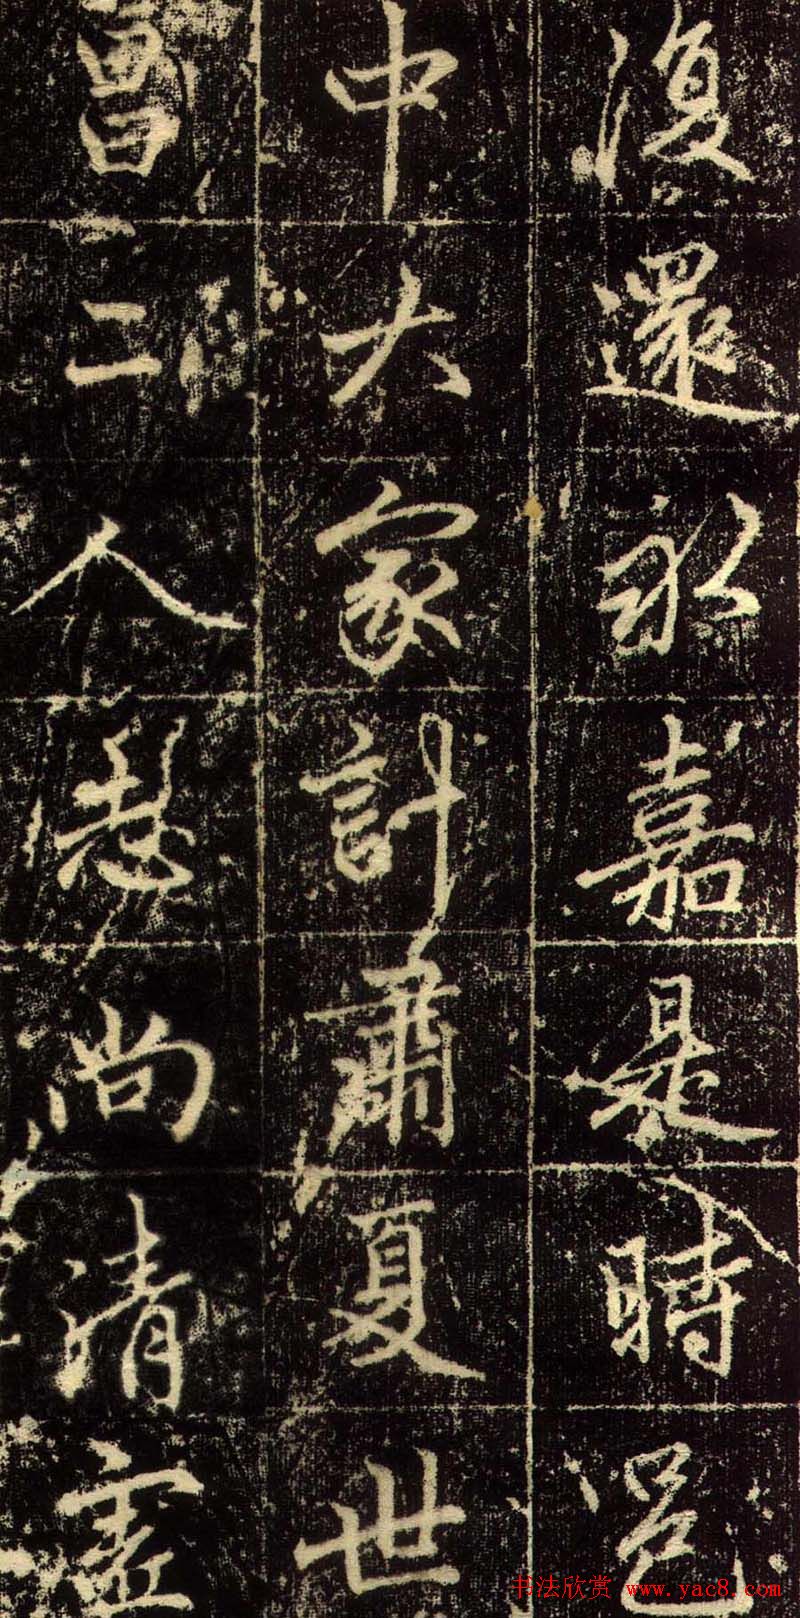 復還永嘉是時邑
中大家計蕭夏世
曾二人尚清虛
书法欣赏 www.yac8.com